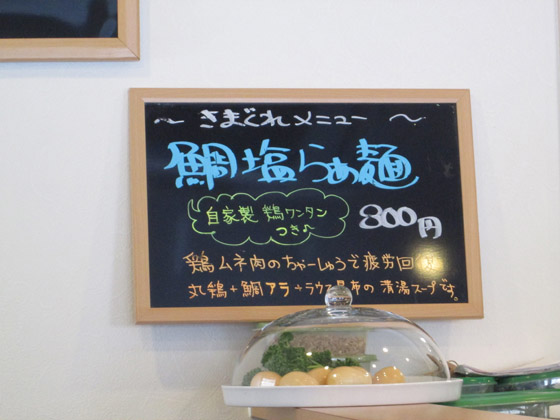 ～ きまぐれメニュー ～
鯛塩らぁ麺
自家製 鶏ワンタン
つき♪
800円
鶏ムネ肉のちゃーしゅうで疲労回復
丸鶏+鯛アラ+ラウス昆布の清湯スープです。